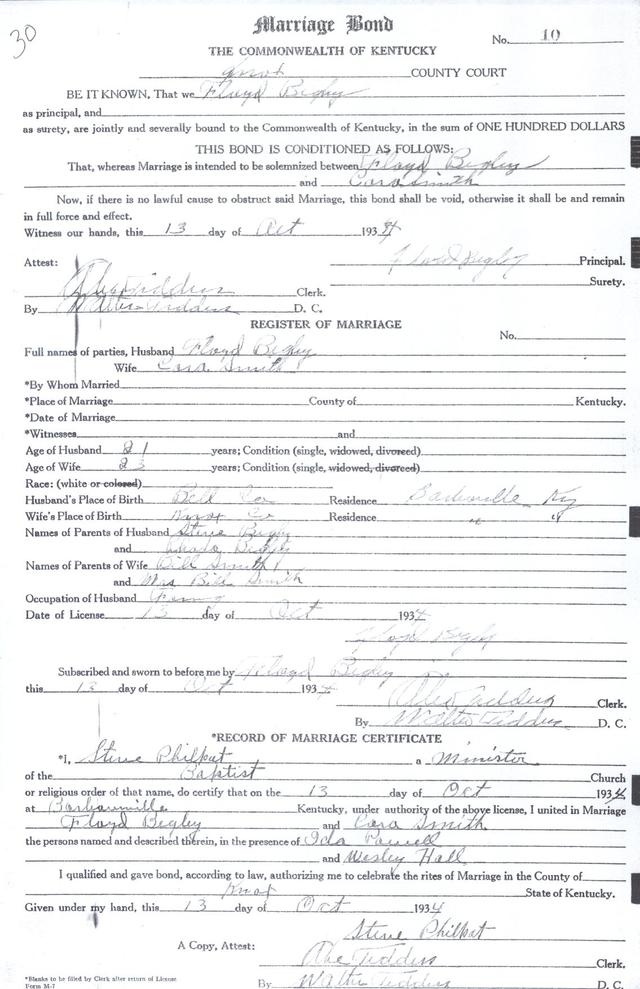 30
Marriage Bond
No. 10
THE COMMONWEALTH OF KENTUCKY
Knox COUNTY COURT
BE IT KNOWN, That we Floyd Bigley
as principal, and
as surety, are jointly and severally bound to the Commonwealth of Kentucky, in the sum of ONE HUNDRED DOLLARS
THIS BOND IS CONDITIONED AS FOLLOWS:
That, whereas Marriage is intended to be solemnized between Floyd Bigley
and Cora Smith
Now, if there is no lawful cause to obstruct said Marriage, this bond shall be void, otherwise it shall be and remain
in full force and effect.
Witness our hands, this 13 day of Oct 1934
Attest: Floyd Bigley Principal.
Surety.
Clerk.
By Walter Tedders D. C.
REGISTER OF MARRIAGE
No.
Full names of parties, Husband Floyd Bigley
Wife Cora Smith
*By Whom Married
*Place of Marriage County of Kentucky.
*Date of Marriage
*Witnesses and
Age of Husband 21 years; Condition (single, widowed, divorced)
Age of Wife 23 years; Condition (single, widowed, divorced)
Race: (white or colored)
Husband's Place of Birth Bell Co Residence Ky
Wife's Place of Birth Knox Co Residence " "
Names of Parents of Husband Steve Bigley
and Bigley
Names of Parents of Wife Bill Smith
and Mrs Bill Smith
Occupation of Husband
Date of License 13 day of Oct 1934
Floyd Bigley
Subscribed and sworn to before me by Floyd Bigley
this 13 day of Oct 1934
Abe Tedders Clerk.
By Walter Tedders D. C.
*RECORD OF MARRIAGE CERTIFICATE
*I, Steve Philpot a Minister
of the Baptist Church
or religious order of that name, do certify that on the 13 day of Oct 1934
at Barbourville Kentucky, under authority of the above license, I united in Marriage
Floyd Bigley and Cora Smith
the persons named and described therein, in the presence of Ida Powell
and Wesley Hall
I qualified and gave bond, according to law, authorizing me to celebrate the rites of Marriage in the County of
Knox State of Kentucky.
Given under my hand, this 13 day of Oct 1934
Steve Philpot
A Copy, Attest: Abe Tedders
Clerk
*Blanks to be filled by Clerk after return of License
Form M-7
By Walter Tedders D. C.